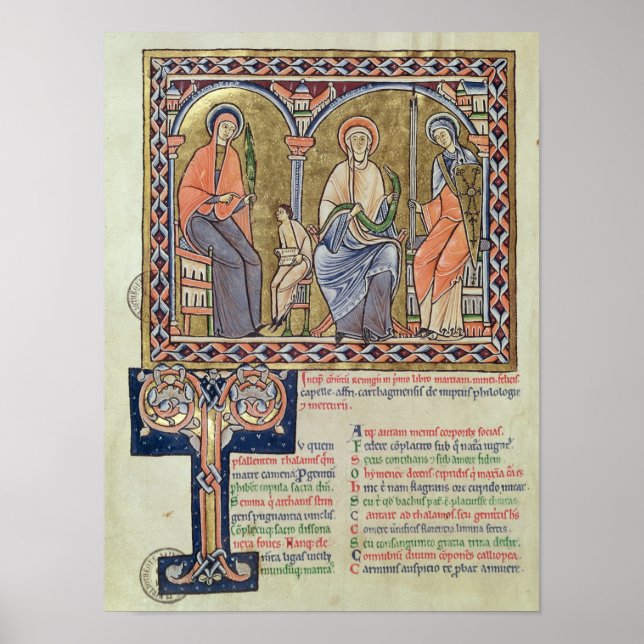 DIALETICA
Incip com̄tū Remigii in p̄mo libro martiani. minei. felicis
capelle. affri. cartaginensis de nuptiis philologie
⁊ mercurii.
Tu quem
psallentem thalamis q̄m
matre camena. Pgenitū
phibent copula sacra dm̄.
Semina q̄ archanis strin
gens pugnantia vinclis.
Cōplexuq̄ sacro dissona
nexa foues. Nanq̄ ele
ligas vicib;
mundūq̄ maritas.
Atq̄ auram mentis corporib; socias.
Federe cōplacito sub q̄ nat̄a iugat̄.
Sexus concilians ⁊ sub amore fidem
O hymenee decens. cipridis q̄ maxīa c̄aes
Hinc t̄ nam flagrans ore cupido micat.
Seu t̄ q̄d bachus pat̄ ē placuisse choreas
Cantare ad thalamos. seu genitc̄is h̄s
Comere uernificis florentia limina sertis.
Seu consanguineo gratia trina dedit.
Connubiū diuum cōponens calliopea
Carminis auspicio te p̄bat annuere.